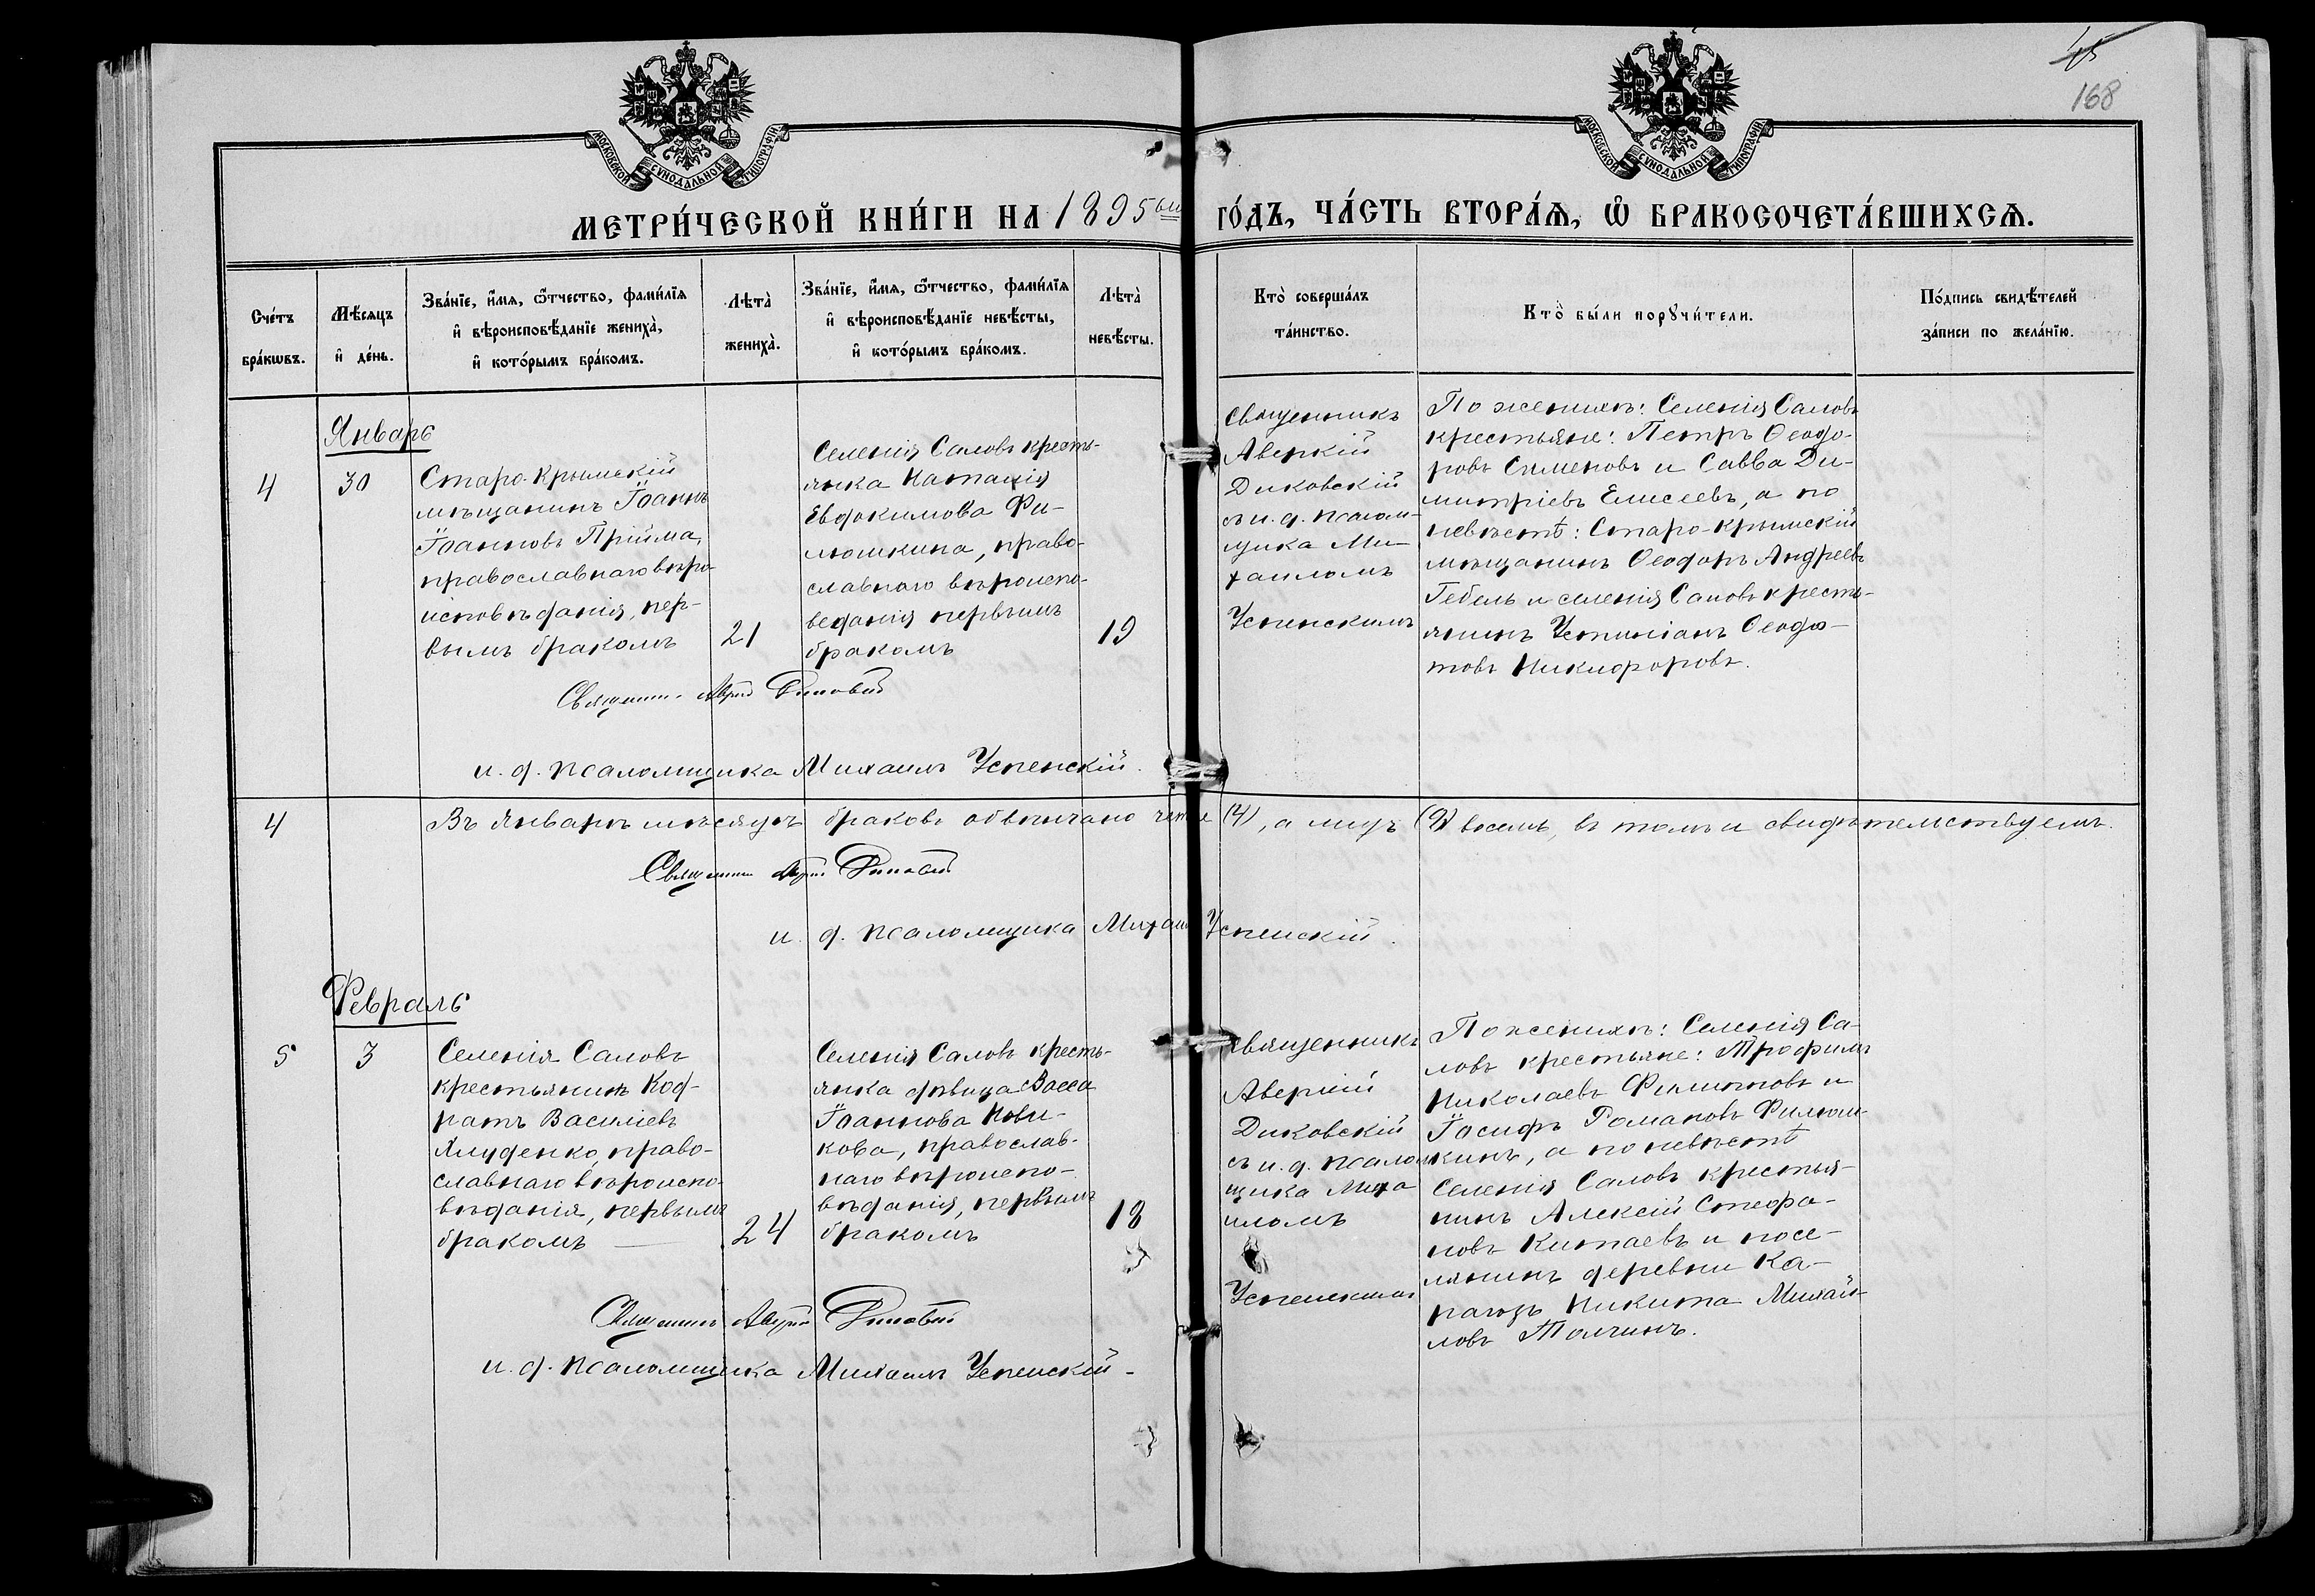 45
168
МОСКОВСКОЙ СѴНОДАЛЬНОЙ ТИПОГРАФІИ
МОСКОВСКОЙ СѴНОДАЛЬНОЙ ТИПОГРАФІИ
МЕТРИ́ЧЕСКОЙ КНИ́ГИ НА 1895ый ГО́ДЪ, ЧА́СТЬ ВТОРА́Ѧ, Ѽ БРАКОСОЧЕТА́ВШИХСѦ.
Сче́тъ
бра́кѡвъ.
Мѣ́сяцъ
и҆ де́нь.
Зва́нїе, и҆́мѧ, ѻ҆́тчество, фами́лїѧ
и҆ вѣроисповѣ́данїе жениха̀,
и҆ кото́рымъ бра́комъ.
Лѣта̀
жениха̀.
Зва́нїе, и҆́мѧ, ѻ҆́тчество, фами́лїѧ
и҆ вѣроисповѣ́данїе невѣ́сты,
и҆ кото́рымъ бра́комъ.
Лѣта̀
невѣ́сты.
Кто̀ соверша́лъ
та́инство.
Кто̀ бы́ли порꙋчи́тели.
По́дпись свидѣ́телей
за́писи по жела́нїю.
Январь
4
30
Старо-Крымскій
мѣщанинъ Іоаннъ
Іоанновъ Прійма,
православнаго вѣро-
исповѣданія, пер-
вымъ бракомъ
21
Селенія Саловъ кресть-
янка Наталія
Евдокимова Фи-
люшкина, право-
славнаго вѣроиспо-
веданія первымъ
бракомъ
19
Священникъ
Аверкій
Диковскій
съ и. д. псалом-
щика Ми-
хаиломъ
Успенскимъ
По женихѣ: Селенія Саловъ
крестьяне: Петръ Ѳеодо-
ровъ Сименовъ и Савва Ди-
митріевъ Елисеевъ, а по
невѣстѣ: Старо-Крымскій
мѣщанинъ Ѳеодоръ Андреевъ
Гебель и селенія Саловъ кресть-
янинъ Устиніанъ Ѳеодо-
товъ Никифоровъ.
и. д. псаломщика Михаилъ Успенскій.
4
Въ Январѣ мѣсяцѣ браковъ обвѣнчано (4), а лицъ (8) восемь, въ томъ и свидѣтельствуемъ.
и. д. псаломщика Михаилъ Успенскій.
Февраль
5
3
Селенія Саловъ
крестьянинъ Код-
ратъ Василіевъ
Хмуденко, право-
славнаго вѣроиспо-
вѣданія, первымъ
бракомъ —
24
Селенія Саловъ кресть-
янка дѣвица Васса
Іоаннова Нови-
кова, православ-
наго вѣроиспо-
вѣданія, первымъ
бракомъ
18
Священникъ
Аверкій
Диковскій
съ и. д. псалом-
щика Миха
иломъ
Успенскимъ
По женихѣ: Селенія Са-
ловъ крестьяне: Трофимъ
Николаевъ Филипповъ и
Іосифъ Романовъ Филюш-
кинъ, а по невѣстѣ
Селенія Саловъ крестья-
нинъ Алексій Стефа-
новъ Китаевъ и посе-
лянинъ деревни Ка-
рагозъ Никита Михай-
ловъ Толчинъ.
и. д. псаломщика Михаилъ Успенскій-